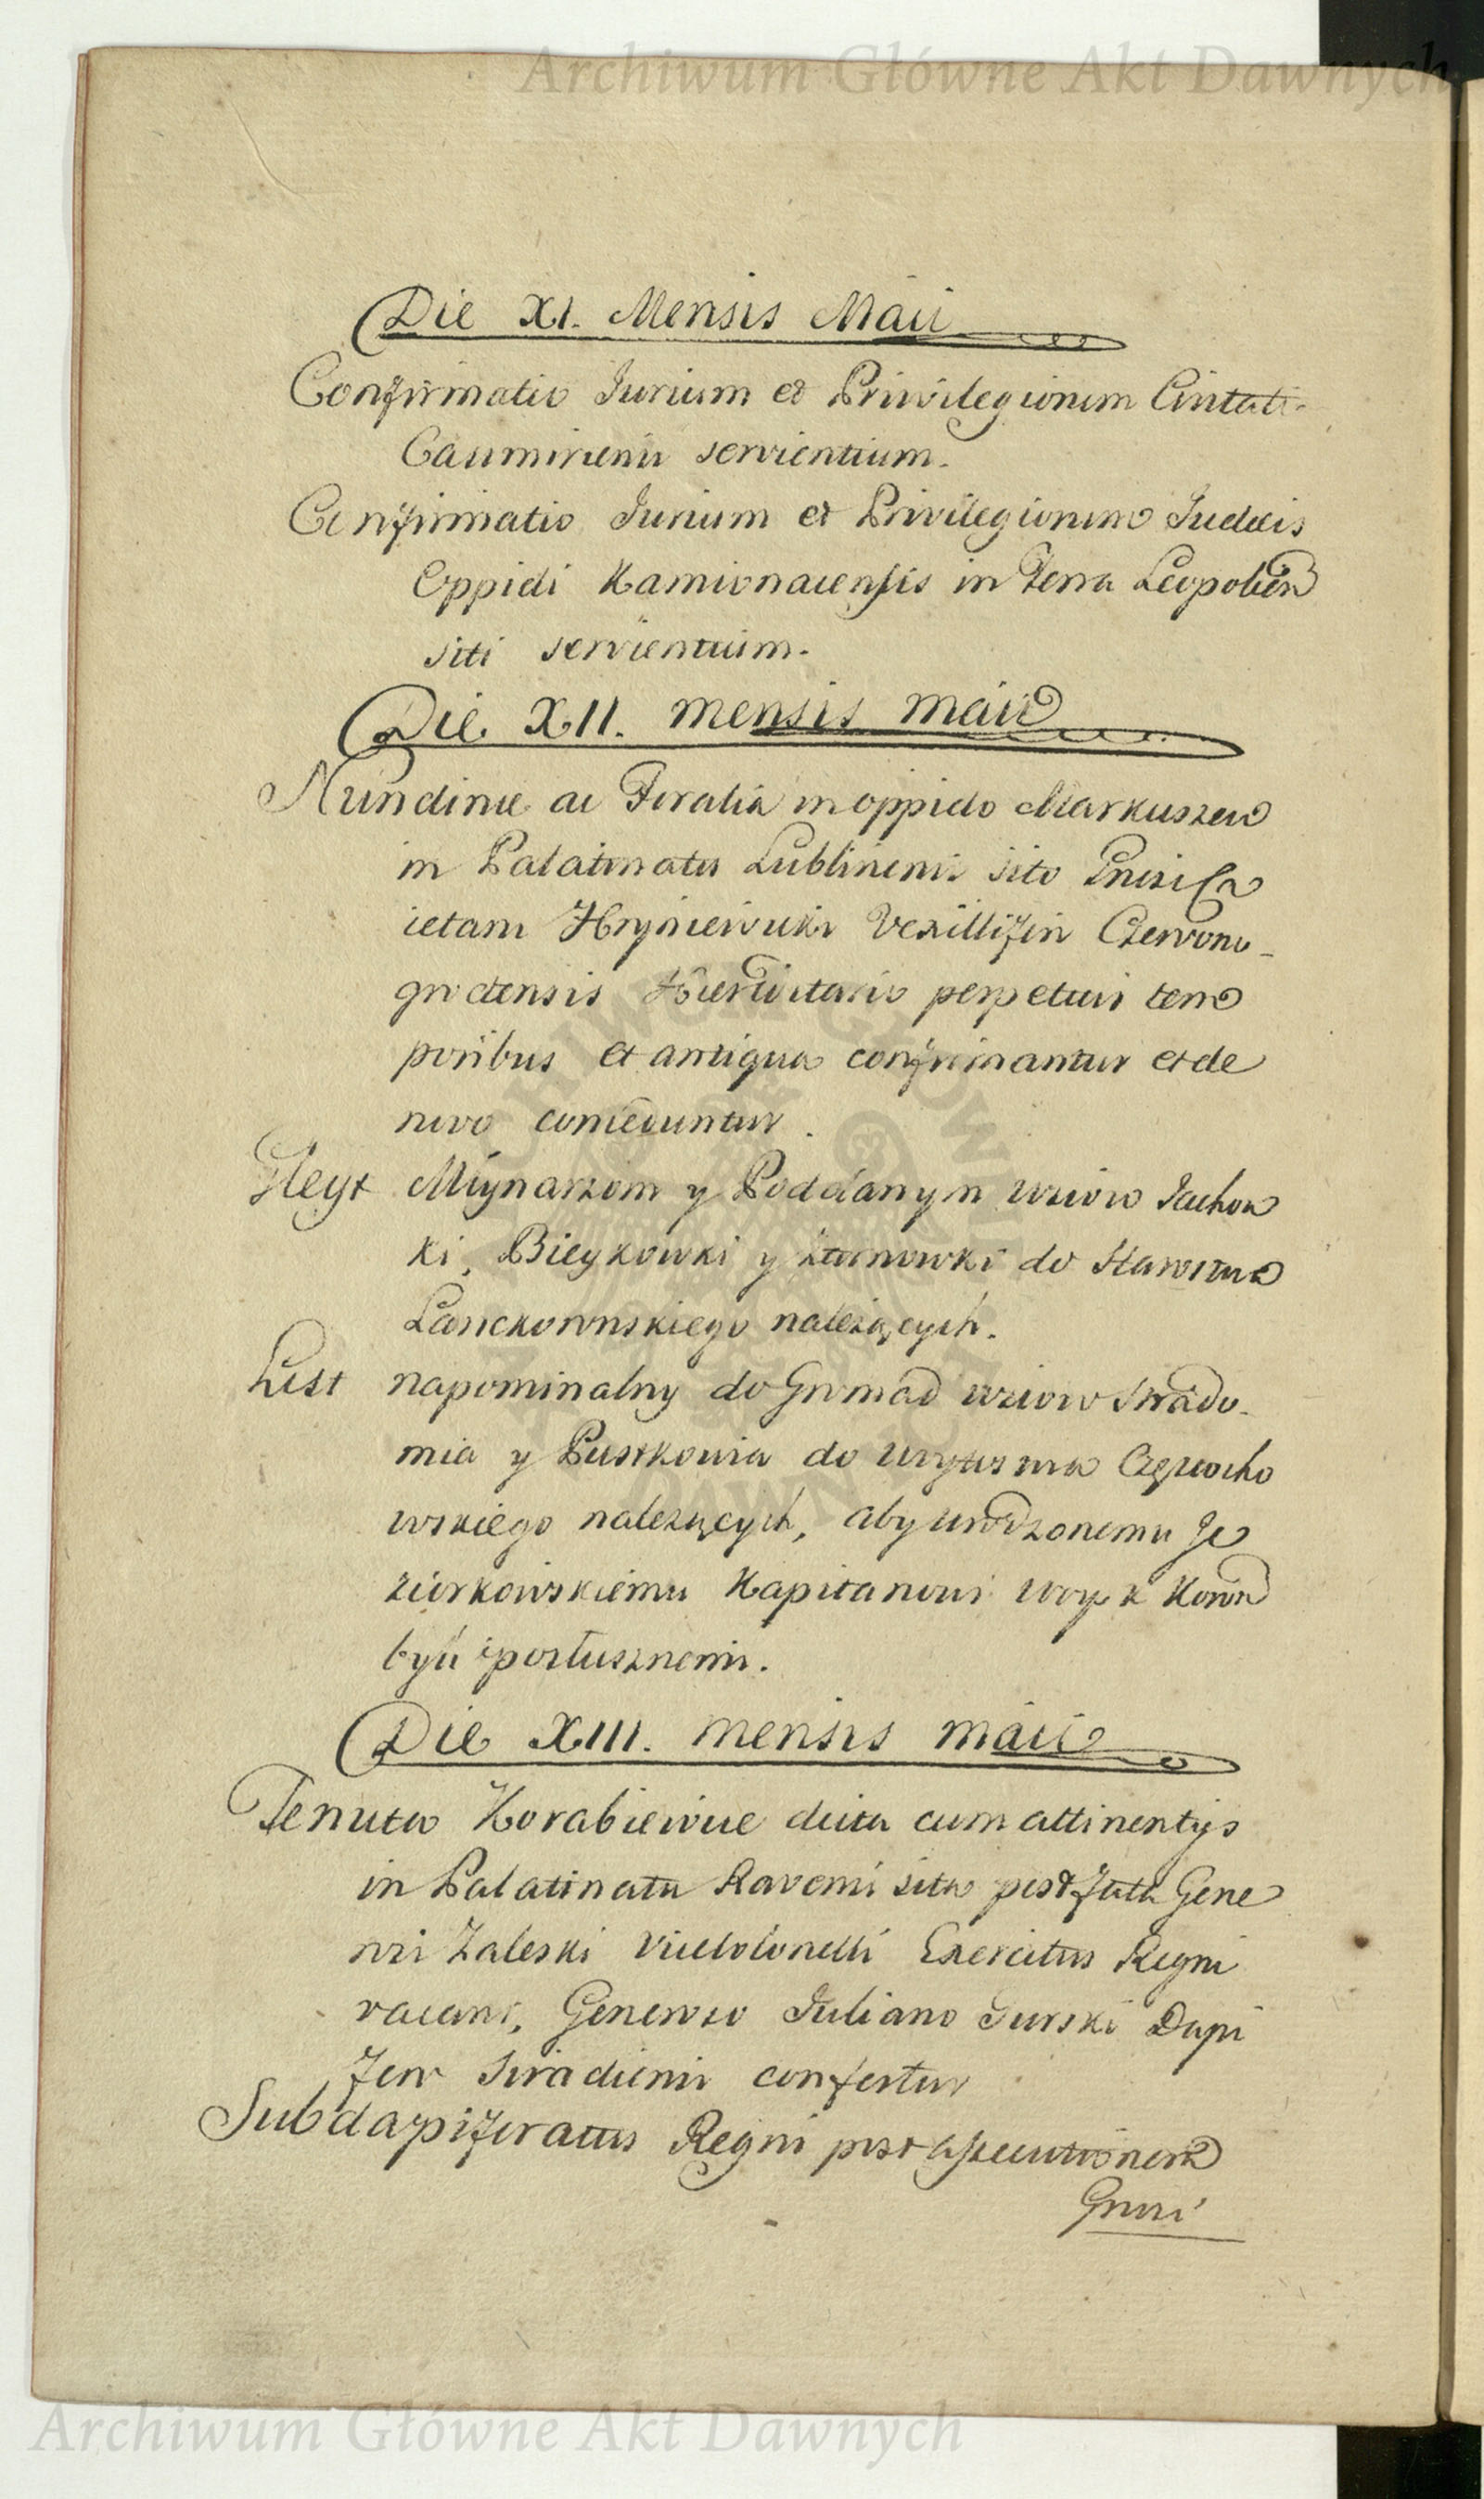 Archiwum Główne Akt Dawnych
Die XI. Mensis Maii
Confirmatio Jurium et Privilegiorum Civitati
Casimiriensi servientium.
Confirmatio Jurium et Privilegiorum Judeis
Oppidi Kamionacensis in Terra Leopolien
siti servientium.
Die XII. mensis maii
Nundinae ac Foralia in oppido Markuszew
in Palatinatu Lublinensi sito
Hryniewicki Vexillifero Czerwono-
grodensis Haereditario perpetuis tem
poribus et antiqua confirmantur et de
novo conceduntur.
Gleyt Młynarzom y Poddanym wsiow
ki, Bieykowki y do Starostwa
Lanckoronskiego należących.
List napominalny do Gromad wsiow Strado-
mia y Pustkowia do Woytostwa Częstocho
wskiego należących, aby urodzonemu Je
ziorkowskiemu Kapitanowi woysk Koron
byli posłusznemi.
Die XIII. mensis maii
Tenuta Korabiewice dicta cum attinentijs
in Palatinatu Raven̄si sita post fata Gene
rosi Zaleski Vicecolonelli Exercitus Regni
vacans, Generoso Juliano Gurski Dapi
fero Siradiensi confertur
Subdapiferatus Regni post assecutionem
Gnrosi
Archiwum Główne Akt Dawnych